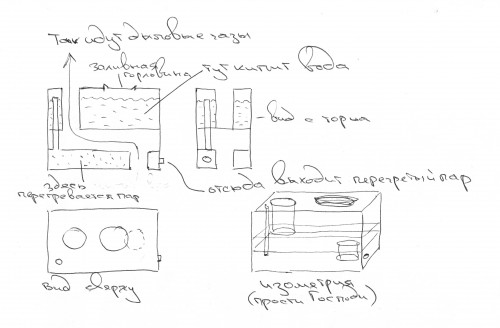 Так идут дымовые газы
заливная
горловина
тут кипит вода
вид с торца
здесь
перегревается пар
отсюда выходит перегретый пар
вид сверху
изометрия
(прости Господи)